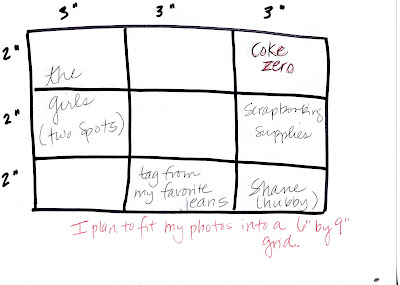 3" 3" 3"
2"
Coke
zero
the
girls
(two spots)
2"
Scrapbooking
supplies
2"
tag from
my favorite
jeans
Shane
(hubby)
I plan to fit my photos into a 6" by 9"
grid.